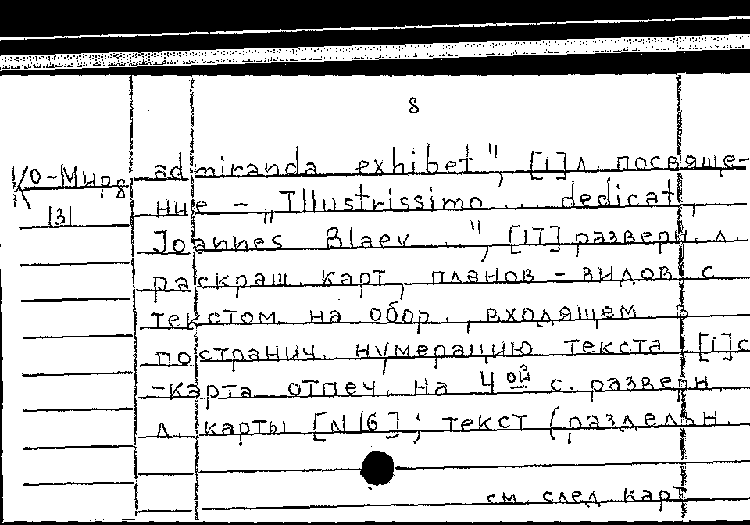 8
admiranda exhibet", [1] л. посвяще-
Ко-Мирв
131
ние - „Illustrissimo... dedicat,
Joannes Blaev...", [17] разверн. л.
раскраш. карт, планов - видов с
текстом на обор., входящем в
постранич. нумерацию текста [1] с
-карта отпеч. на 4ой с. разверн.
л. карты [N 16]; текст (раздельн.
см. след. карт